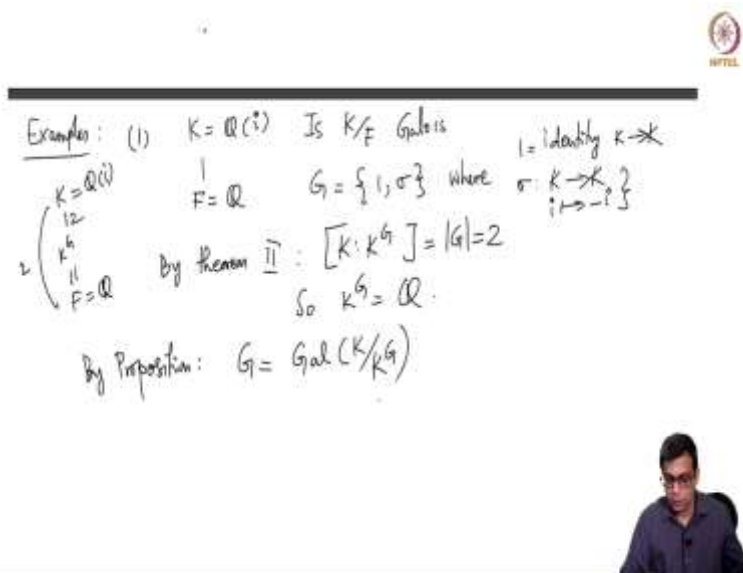 NPTEL
Examples: (1) K = Q(i) Is K/F Galois
|
F = Q
G = {1, σ} where 1 = identity K → K
σ: K → K, }
i ↦ -i
K = Q(i)
|2
K^G
||
F = Q
2
By theorem II: [K : K^G] = |G| = 2
So K^G = Q.
By Proposition: G = Gal(K/K^G)